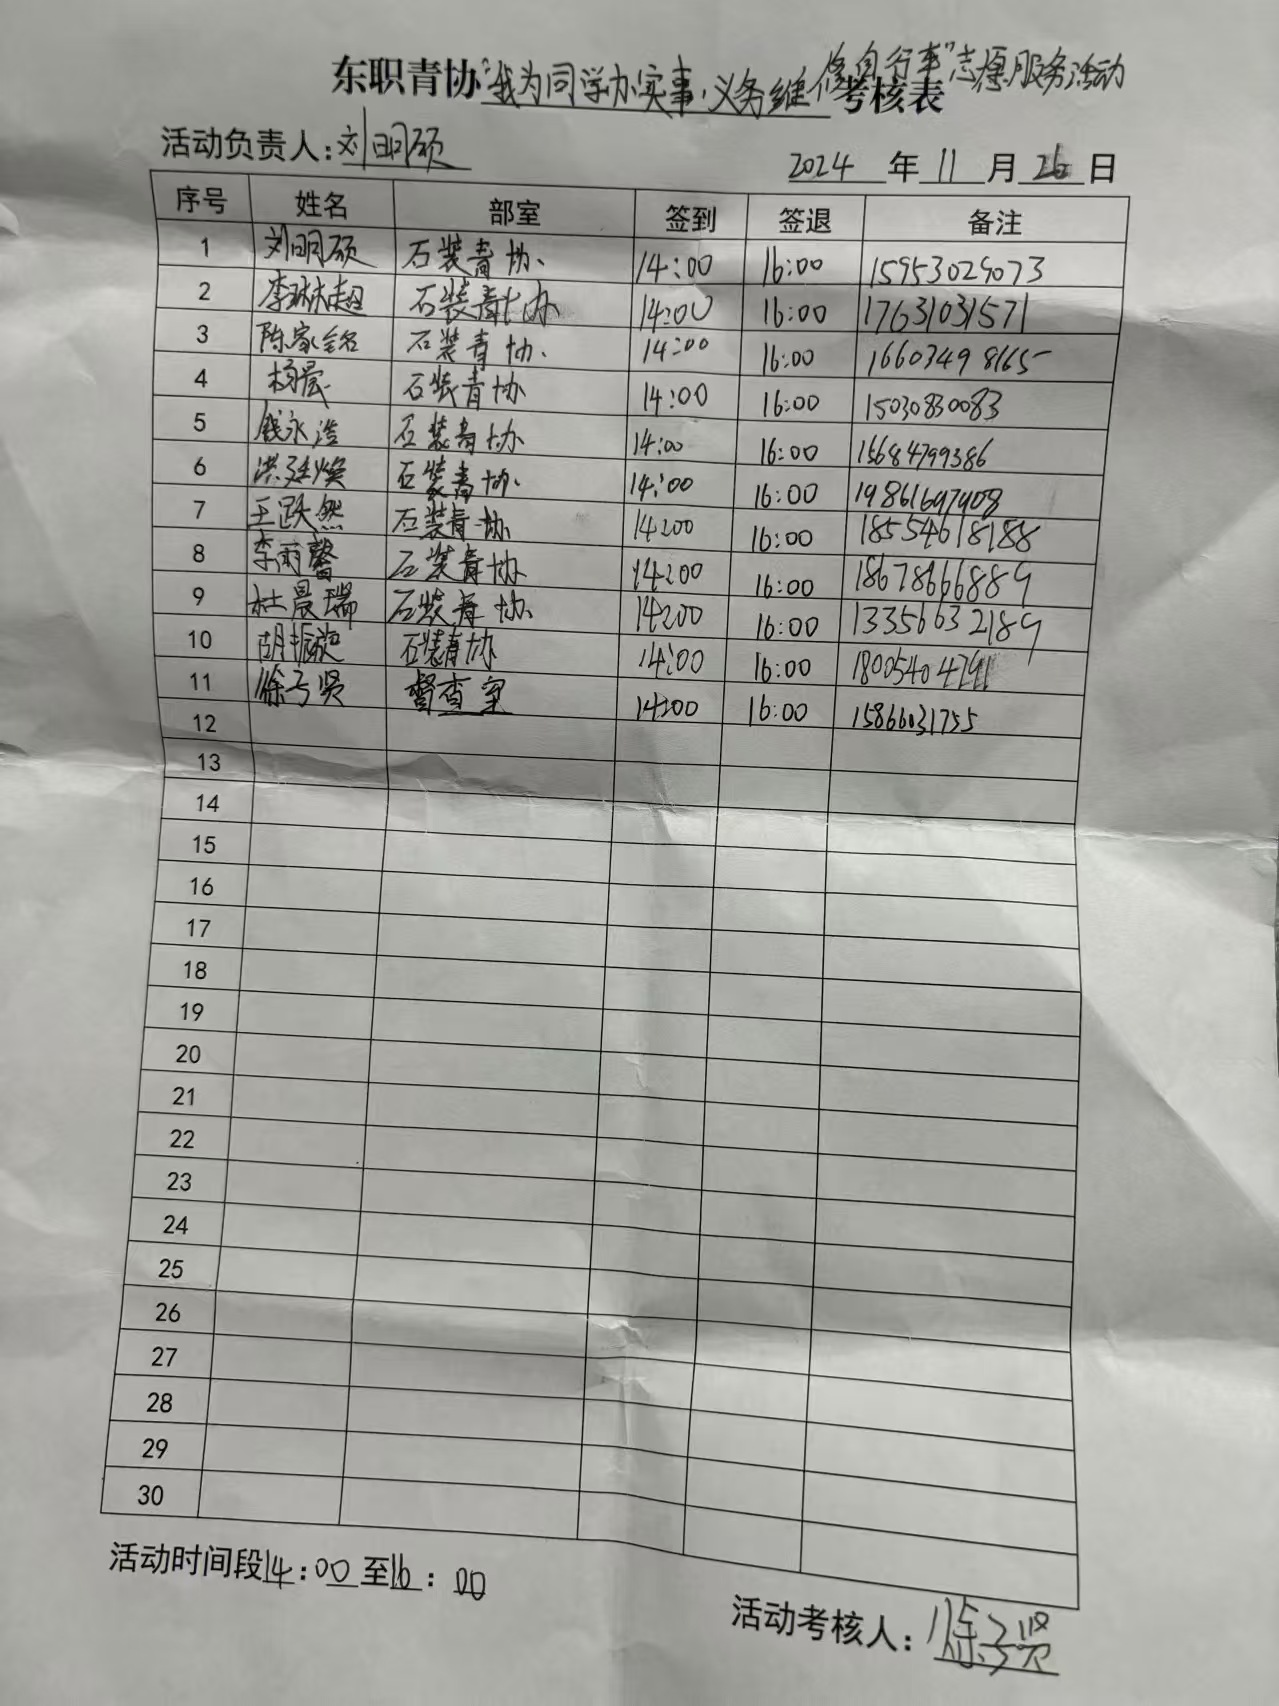 东职青协“我为同学办实事,义务维修自行车”志愿服务活动考核表
活动负责人:刘明硕
2024 年 11 月 26 日
序号 姓名 部室 签到 签退 备注
1 刘明硕 石装青协. 14:00 16:00 15953029073
2 李琳超 石装青协 14:00 16:00 17631031571
3 陈家铭 石装青协. 14:00 16:00 16603498165
4 杨晨 石装青协 14:00 16:00 15030830083
5 钱永浩 石装青协 14:00 16:00 15684799386
6 洪廷焕 石装青协. 14:00 16:00 19861697908
7 王跃然 石装青协 14:00 16:00 18554618188
8 李雨馨 石装青协 14:00 16:00 18678666889
9 杜晨瑞 石装青协. 14:00 16:00 13356632189
10 胡振 石装青协 14:00 16:00
11 徐子贤 督查室 14:00 16:00 15866031755
12
13
14
15
16
17
18
19
20
21
22
23
24
25
26
27
28
29
30
活动时间段14:00至16:00
活动考核人:徐子贤